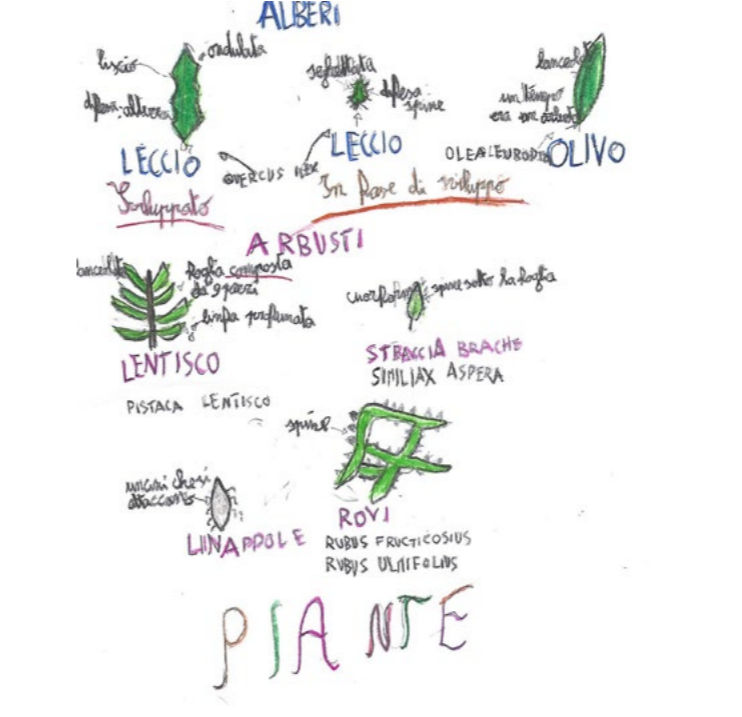 ALBERI
liscio
ondulata
difesa: altezza
LECCIO
Sviluppato
QUERCUS ILEX
seghettata
difesa
spine
LECCIO
In fase di sviluppo
lanceolata
un tempo
era un arbusto
OLEA EUROPEA
OLIVO
ARBUSTI
lanceolata
foglia composta
da 9 pezzi
linfa profumata
LENTISCO
PISTACA LENTISCO
cuoriforme
spine sotto la foglia
STRACCIA BRACHE
SIMILIAX ASPERA
uncini che si
attaccano
LINAPPOLE
spine
ROVI
RUBUS FRUCTICOSIUS
RUBUS ULMIFOLIUS
PIANTE